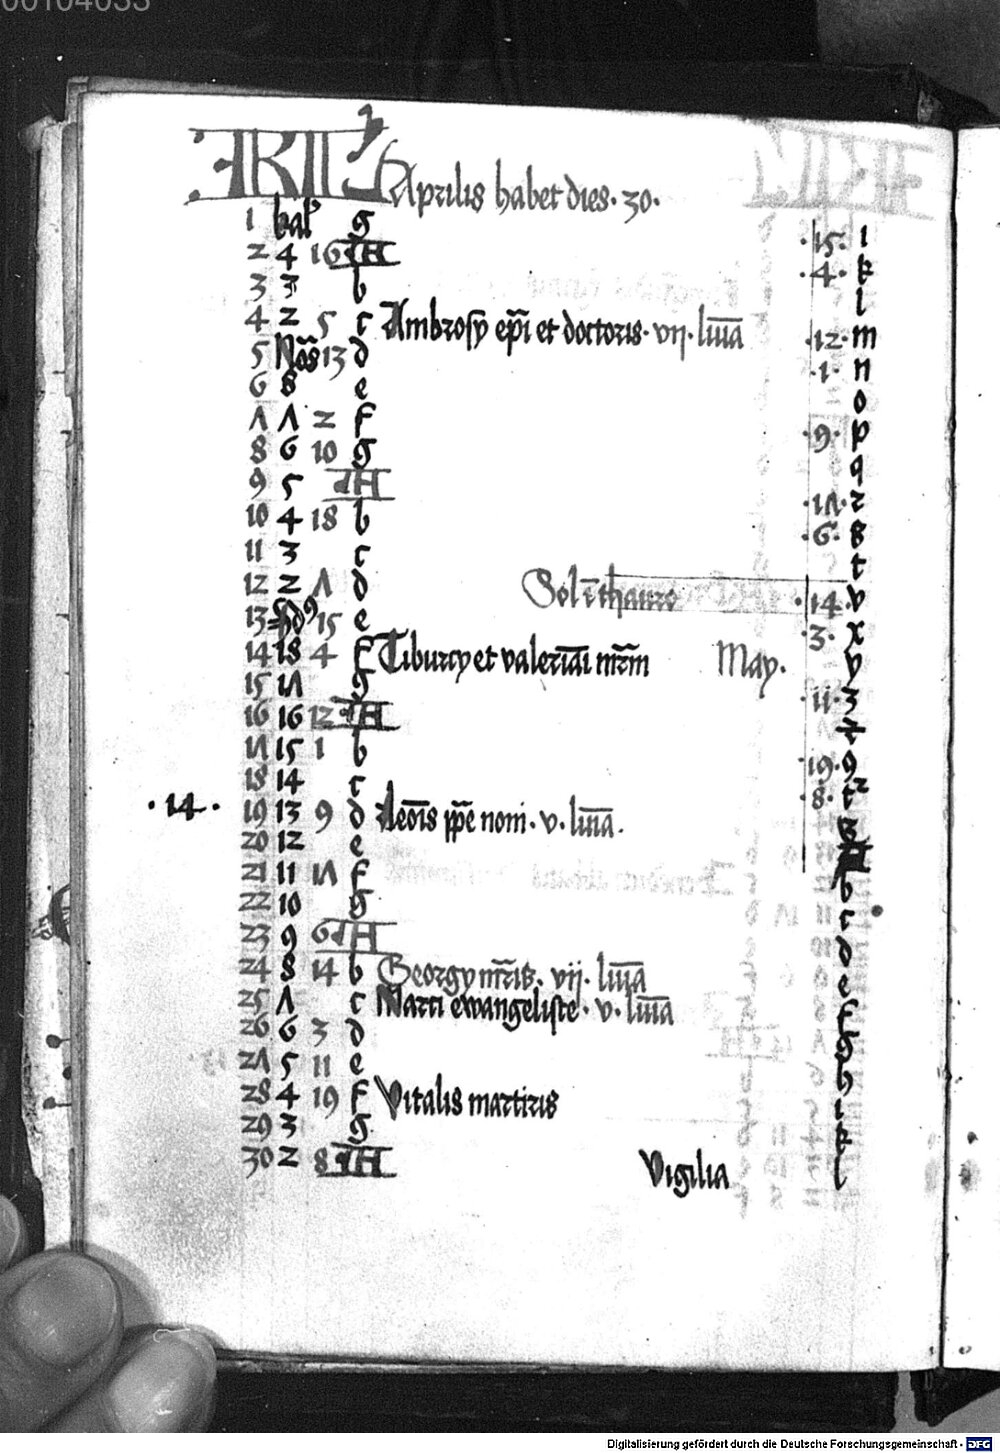 00104033
KL Aprilis habet dies · 30 ·
1 kal' g · 15 · i
2 4 16 A · 4 · k
3 3 b l
4 2 5 c Ambrosy ep̄i et doctoris · vij · lm̄a · 12 · m
5 No͞s 13 d · 1 · n
6 8 e o
7 7 2 f · 9 · p
8 6 10 g q
9 5 A · 17 · r
10 4 18 b · 6 · s
11 3 c t
12 2 7 d Sol ī thauro · 14 · v
13 Id9 15 e · 3 · x
14 18 4 f Tiburcy et valeriāi mr̄m May · y
15 17 g · 11 · z
16 16 12 A
17 15 1 b · 19 · 9
18 14 c · 8 ·
· 14 · 19 13 9 d Leōis pp̄e noni · v · lm̄a ·
20 12 e A
21 11 17 f b
22 10 g c
23 9 6 A d
24 8 14 b Georgy mr̄is · vij · lm̄a e
25 7 c Marci ewangeliste · v · lm̄a f
26 6 3 d g
27 5 11 e h
28 4 19 f Vitalis martiris i
29 3 g k
30 2 8 A Vigilia l
Digitalisierung gefördert durch die Deutsche Forschungsgemeinschaft - DFG